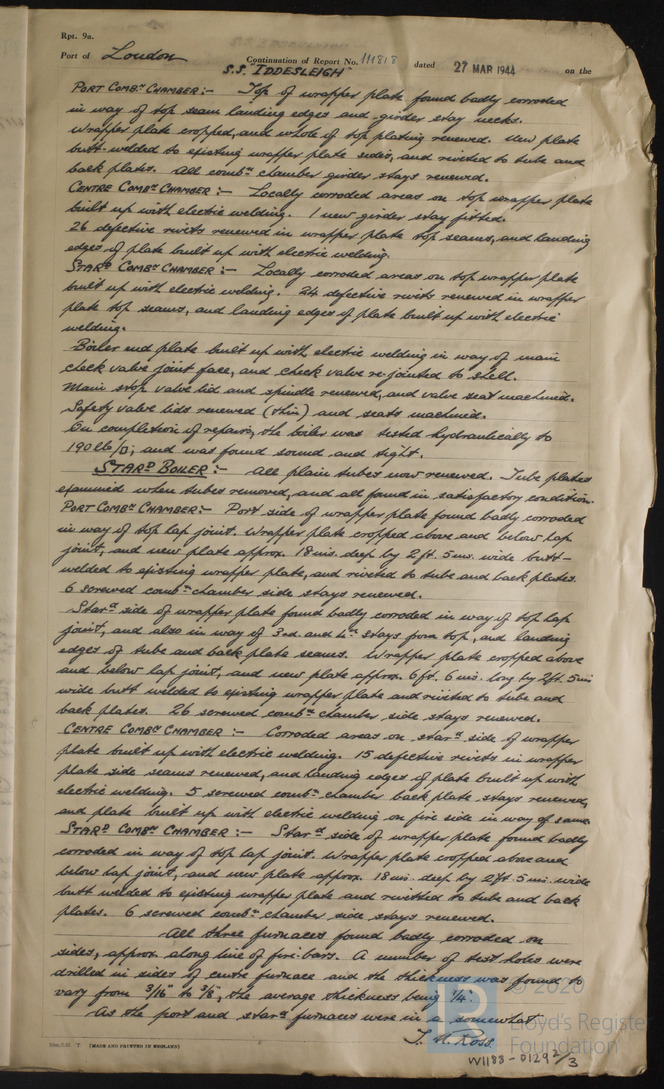 Rpt. 9a.
Port of London Continuation of Report No. 111818 dated 27 MAR 1944 on the
S.S. "IDDESLEIGH"
PORT COMBN CHAMBER:- Top of wrapper plate found badly corroded
in way of top seam landing edges and girder stay necks.
Wrapper plate cropped, and whole of top plating renewed. New plate
butt-welded to existing wrapper plate sides, and riveted to tube and
back plates. All combn chamber girder stays renewed.
CENTRE COMBN CHAMBER:- Locally corroded areas on top wrapper plate
built up with electric welding. 1 new girder stay fitted.
26 defective rivets renewed in wrapper plate top seams, and landing
edges of plate built up with electric welding.
STARD COMBN CHAMBER:- Locally corroded areas on top wrapper plate
built up with electric welding. 24 defective rivets renewed in wrapper
plate top seams, and landing edges of plate built up with electric
welding.
Boiler end plate built up with electric welding in way of main
check valve joint face, and check valve re-jointed to shell.
Main stop valve lid and spindle renewed, and valve seat machined.
Safety valve lids renewed (thin) and seats machined.
On completion of repairs, the boiler was tested hydraulically to
190 lb/□; and was found sound and tight.
STARD BOILER:- All plain tubes now renewed. Tube plates
examined when tubes removed, and all found in satisfactory condition.
PORT COMBN CHAMBER:- Port side of wrapper plate found badly corroded
in way of top lap joint. Wrapper plate cropped above and below lap
joint, and new plate approx. 18 ins. deep by 2 ft. 5 ins. wide butt-
welded to existing wrapper plate, and riveted to tube and back plates.
6 screwed combn chamber side stays renewed.
Stard side of wrapper plate found badly corroded in way of top lap
joint, and also in way of 3rd. and 4th stays from top, and landing
edges of tube and back plate seams. Wrapper plate cropped above
and below lap joint, and new plate approx. 6 ft. 6 ins. long by 2 ft. 5 ins
wide butt welded to existing wrapper plate and riveted to tube and
back plates. 26 screwed combn chamber side stays renewed.
CENTRE COMBN CHAMBER:- Corroded areas on stard side of wrapper
plate built up with electric welding. 15 defective rivets in wrapper
plate side seams renewed, and landing edges of plate built up with
electric welding. 5 screwed combn chamber back plate stays renewed,
and plate built up with electric welding on fire side in way of same.
STARD COMBN CHAMBER:- Stard side of wrapper plate found badly
corroded in way of top lap joint. Wrapper plate cropped above and
below lap joint, and new plate approx. 18 ins. deep by 2 ft. 5 ins. wide
butt welded to existing wrapper plate and rivetted to tube and back
plates. 6 screwed combn chamber side stays renewed.
All three furnaces found badly corroded on
sides, approx along line of fire-bars. A number of test holes were
drilled in sides of centre furnace and the thickness was found to
vary from 3/16" to 3/8", the average thickness being 1/4".
As the port and stard furnaces were in a somewhat
J. H. Ross.
(MADE AND PRINTED IN ENGLAND)
© 2020
Lloyd's Register
Foundation
W1188-0129 2/3